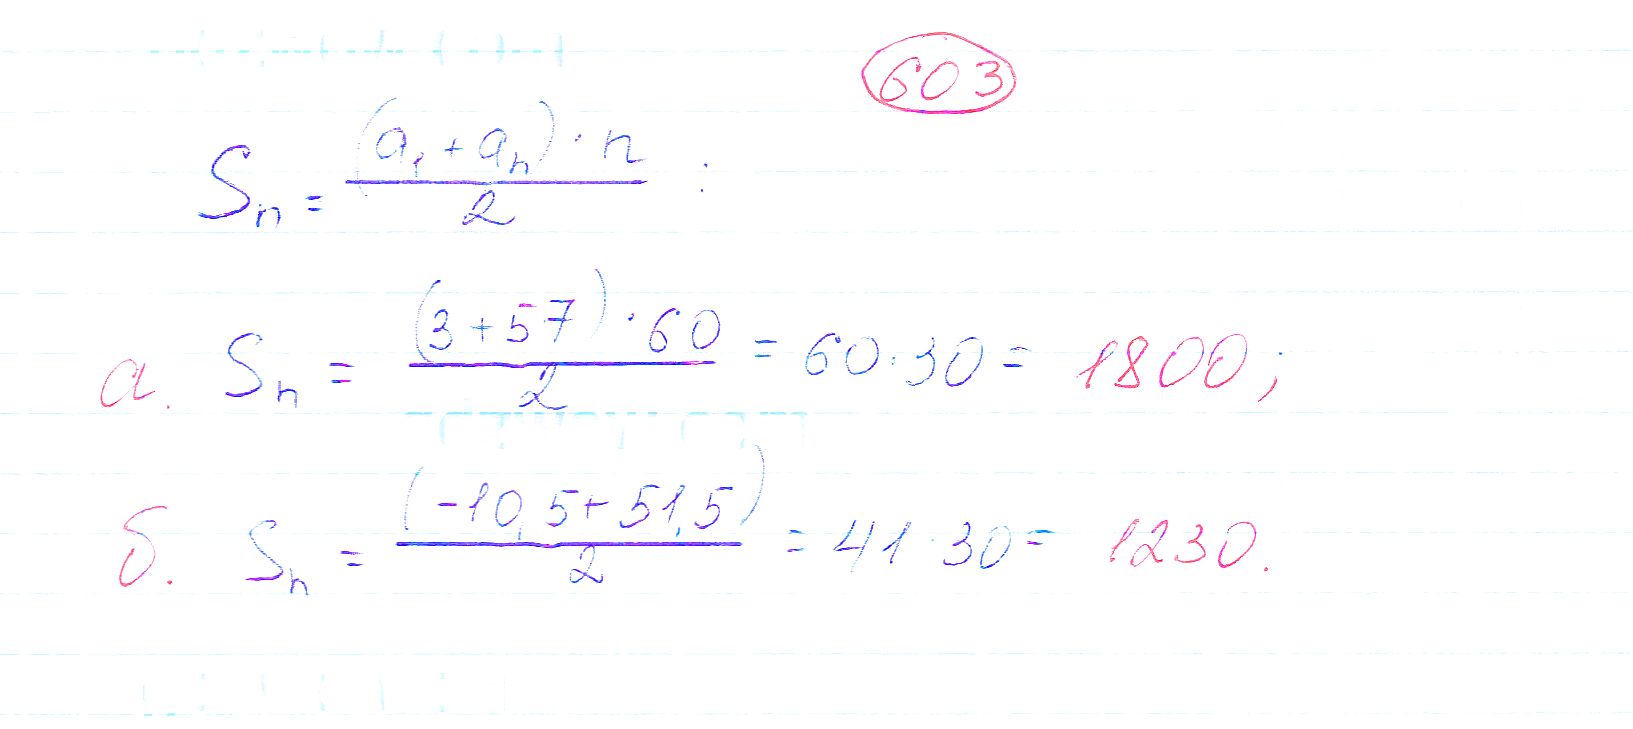 603
Sₙ = (a₁ + aₙ) · n / 2 :
а. Sₙ = (3 + 57) · 60 / 2 = 60 · 30 = 1800;
б. Sₙ = (-10,5 + 51,5) / 2 = 41 · 30 = 1230.